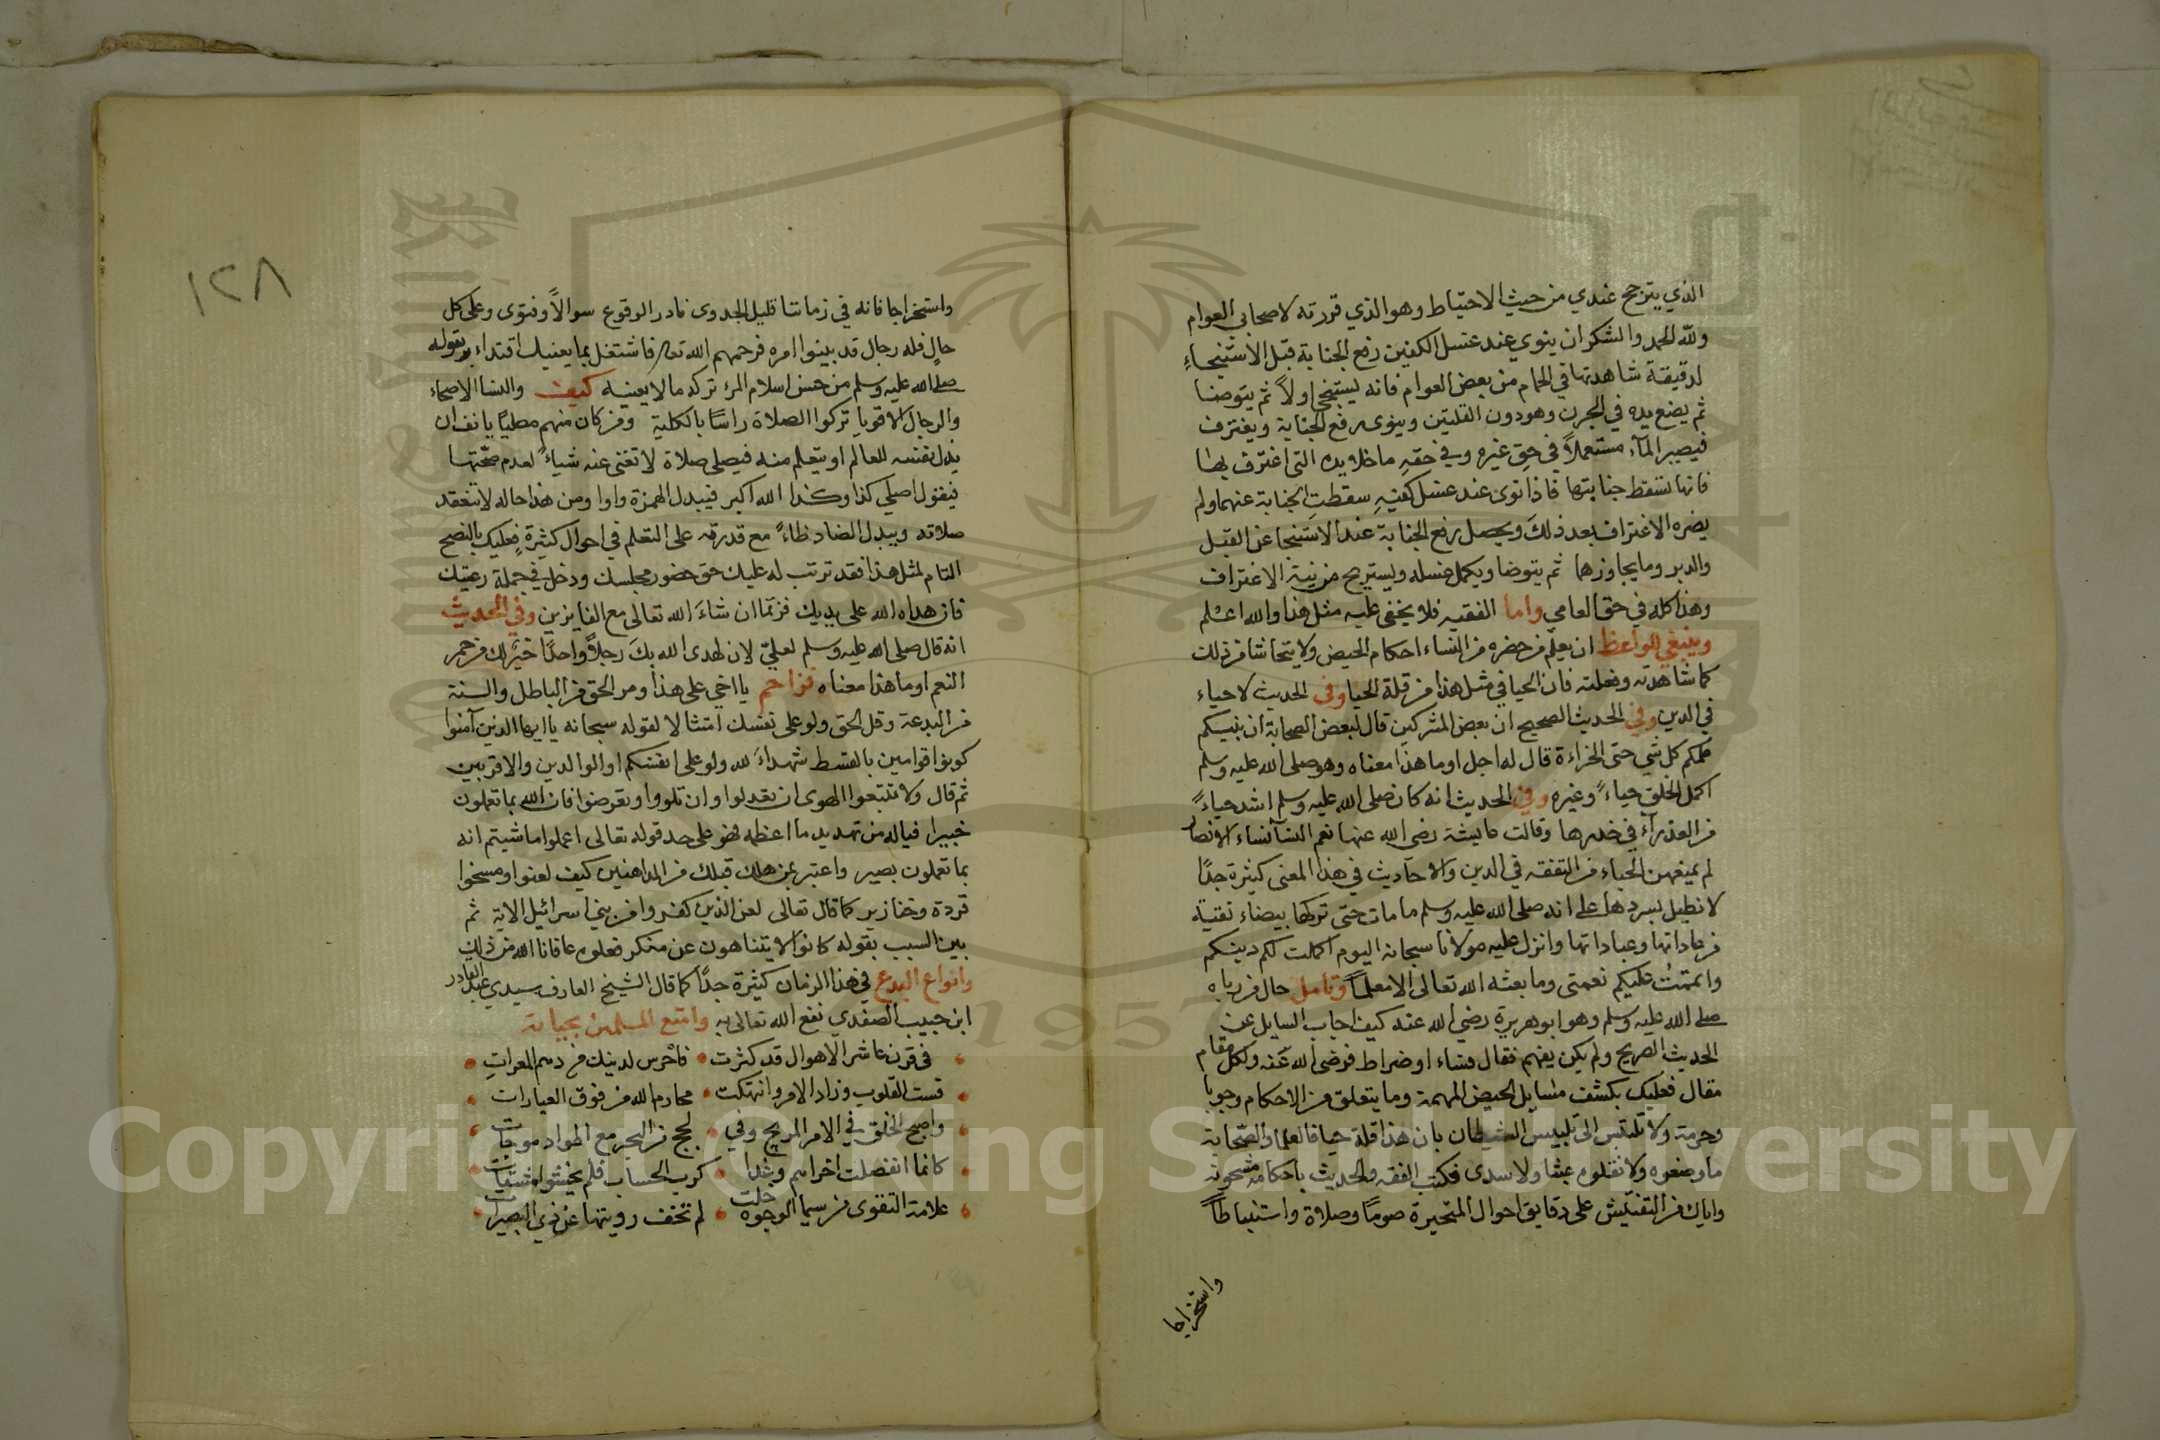 الذي يترجح عندي من حيث الاحتياط وهو الذي قررته لاصحابي العوام
ولله الحمد والشكر ان ينوي عند غسل الكفين رفع الجنابة قبل الاستنجاء
لدقيقة شاهدتها في الحمام من بعض العوام فانه يستنجي اولاً ثم يتوضا
ثم يضع يده في الجرن وهو دون القلتين وينوي رفع الجنابة ويغترف
فيصير المآء مستعملاً في حق غيره وفي حقه ما خلا يده التي اغترف بها
فانها تسقط جنابتها فاذا نوى عند غسل كفيه سقطت الجنابة عنهما ولم
يضره الاغتراف بعد ذلك ويحصل رفع الجنابة عند الاستنجا عن القبل
والدبر وما يجاوزهما ثم يتوضا ويكمل غسله ويستريح من نية الاغتراف
وهذا كله في حق العامي واما الفقيه فلا يخفى عليه مثل هذا والله اعلم
وينبغي للواعظ ان يعلّم من حضره من النساء احكام الحيض ولا يتحاشا من ذلك
كما شاهدته وفعلته فان الحيا في مثل هذا من قلة الحيا وفي الحديث لا حياء
في الدين وفي الحديث الصحيح ان بعض المشركين قال لبعض الصحابة ان نبيكم
علمكم كل شي حتى الخراءة قال له اجل او ما هذا معناه وهو صلى الله عليه وسلم
اكمل الخلق حياءً وغيره وفي الحديث انه كان صلى الله عليه وسلم اشد حياءً
من العذرآء في خدرها وقالت عايشة رضي الله عنها نعم النسا نساء الانصار
لم يمنعهن الحياء من التفقه في الدين والاحاديث في هذا المعنى كثيرة جدًا
لا نطيل بسردها على انه صلى الله عليه وسلم ما مات حتى تركها بيضاء نقية
من عاداتها وعباداتها وانزل عليه مولانا سبحانه اليوم اكملت لكم دينكم
واتممت عليكم نعمتي وما بعثه الله تعالى الا معلمًا وتامل حال من رباه
صلى الله عليه وسلم وهو ابو هريرة رضي الله عنه كيف اجاب السايل عن
الحديث الصريح ولم يكن يفهم فقال فساء او ضراط فرضي الله عنه ولكل مقام
مقال فعليك بكشف مسايل الحيض المهمة وما يتعلق من الاحكام وجوبا
وحرمة ولا تلتبس الى تلبيس الشيطان بان هذا قلة حيا فالعلما والصحابة
ما وضعوه ولا نقلوه عبثا ولا سدى فكتب الفقه والحديث باحكامه مشحونة
واياك من التفتيش على دقايق احوال المتحيرة صومًا وصلاة واستنباطاً
واستخراجا
١٢٨
واستخراجا فانه في زماننا قليل الجدوى نادر الوقوع سوالاً وفتوى وعلى كل
حال فله رجال قد بينوا امره فرحمهم الله تعالى فاشتغل بما يعنيك اقتداء بقوله
صلى الله عليه وسلم من حسن اسلام المرء تركه ما لا يعنيه كيف والنسا الاصحاء
والرجال الاقويا تركوا الصلاة راسًا بالكلية ومن كان منهم مصليًا يانف ان
يذل نفسه للعالم او يتعلم منه فيصلي صلاة لا تغني عنه شياءً لعدم صحتها
فيقول اصلي كذا وكذا الله اكبر فيبدل الهمزة واوا ومن هذا حاله لا تنعقد
صلاته ويبدل الضاد ظاءً مع قدرته على التعلم في احوال كثيرة فعليك بالنصح
التام لمثل هذا فقد ترتب له عليك حق حضور مجلسك ودخل في جملة رعيتك
فان هداه الله على يديك فربما ان شاء الله تعالى مع الفايزين وفي الحديث
انه قال صلى الله عليه وسلم لعليّ لان يهدى الله بك رجلاً واحدًا خير لك من حمر
النعم او ما هذا معناه فزاحم يا اخي على هذا ومر الحق من الباطل والسنة
من البدعة وقل الحق ولو على نفسك امتثالا لقوله سبحانه يا ايها الذين آمنوا
كونوا قوامين بالقسط شهداء لله ولو على انفسكم او الوالدين والاقربين
ثم قال ولا تتبعوا الهوى ان تعدلوا وان تلووا او تعرضوا فان الله بما تعملون
خبيرا فياله من تهديد ما اعظمه فهو على حد قوله تعالى اعملوا ما شيتم انه
بما تعملون بصير واعتبر بمن هلك قبلك من المداهنين كيف لعنوا ومسخوا
قردة وخنازير كما قال تعالى لعن الذين كفروا من بني اسرائيل الاية ثم
بين السبب بقوله كانوا لا يتناهون عن منكر فعلوه عافانا الله من ذلك
وانواع البدع في هذا الزمان كثيرة جدًا كما قال الشيخ العارف سيدي عبد القادر
ابن حبيب الصفدي نفع الله تعالى به وامتع المسلمين بحياته
في قرن عاشر الاهوال قد كثرت فاحرس لدينك من دهم المعرات
قست القلوب وزاد الامر وانتهكت محارم الله من فوق العبارات
واصبح الخلق في الامر المريج وفي لجج من البحر مع اطواد موجات
كانما انفصلت اخراهم وغدا كرب الحساب فلم يخشوا مشقيات
علامة التقوى من سيما الوجوه خلت لم تخف رويتها عن ذي البصيرات
Copyright © King Saud University
1957